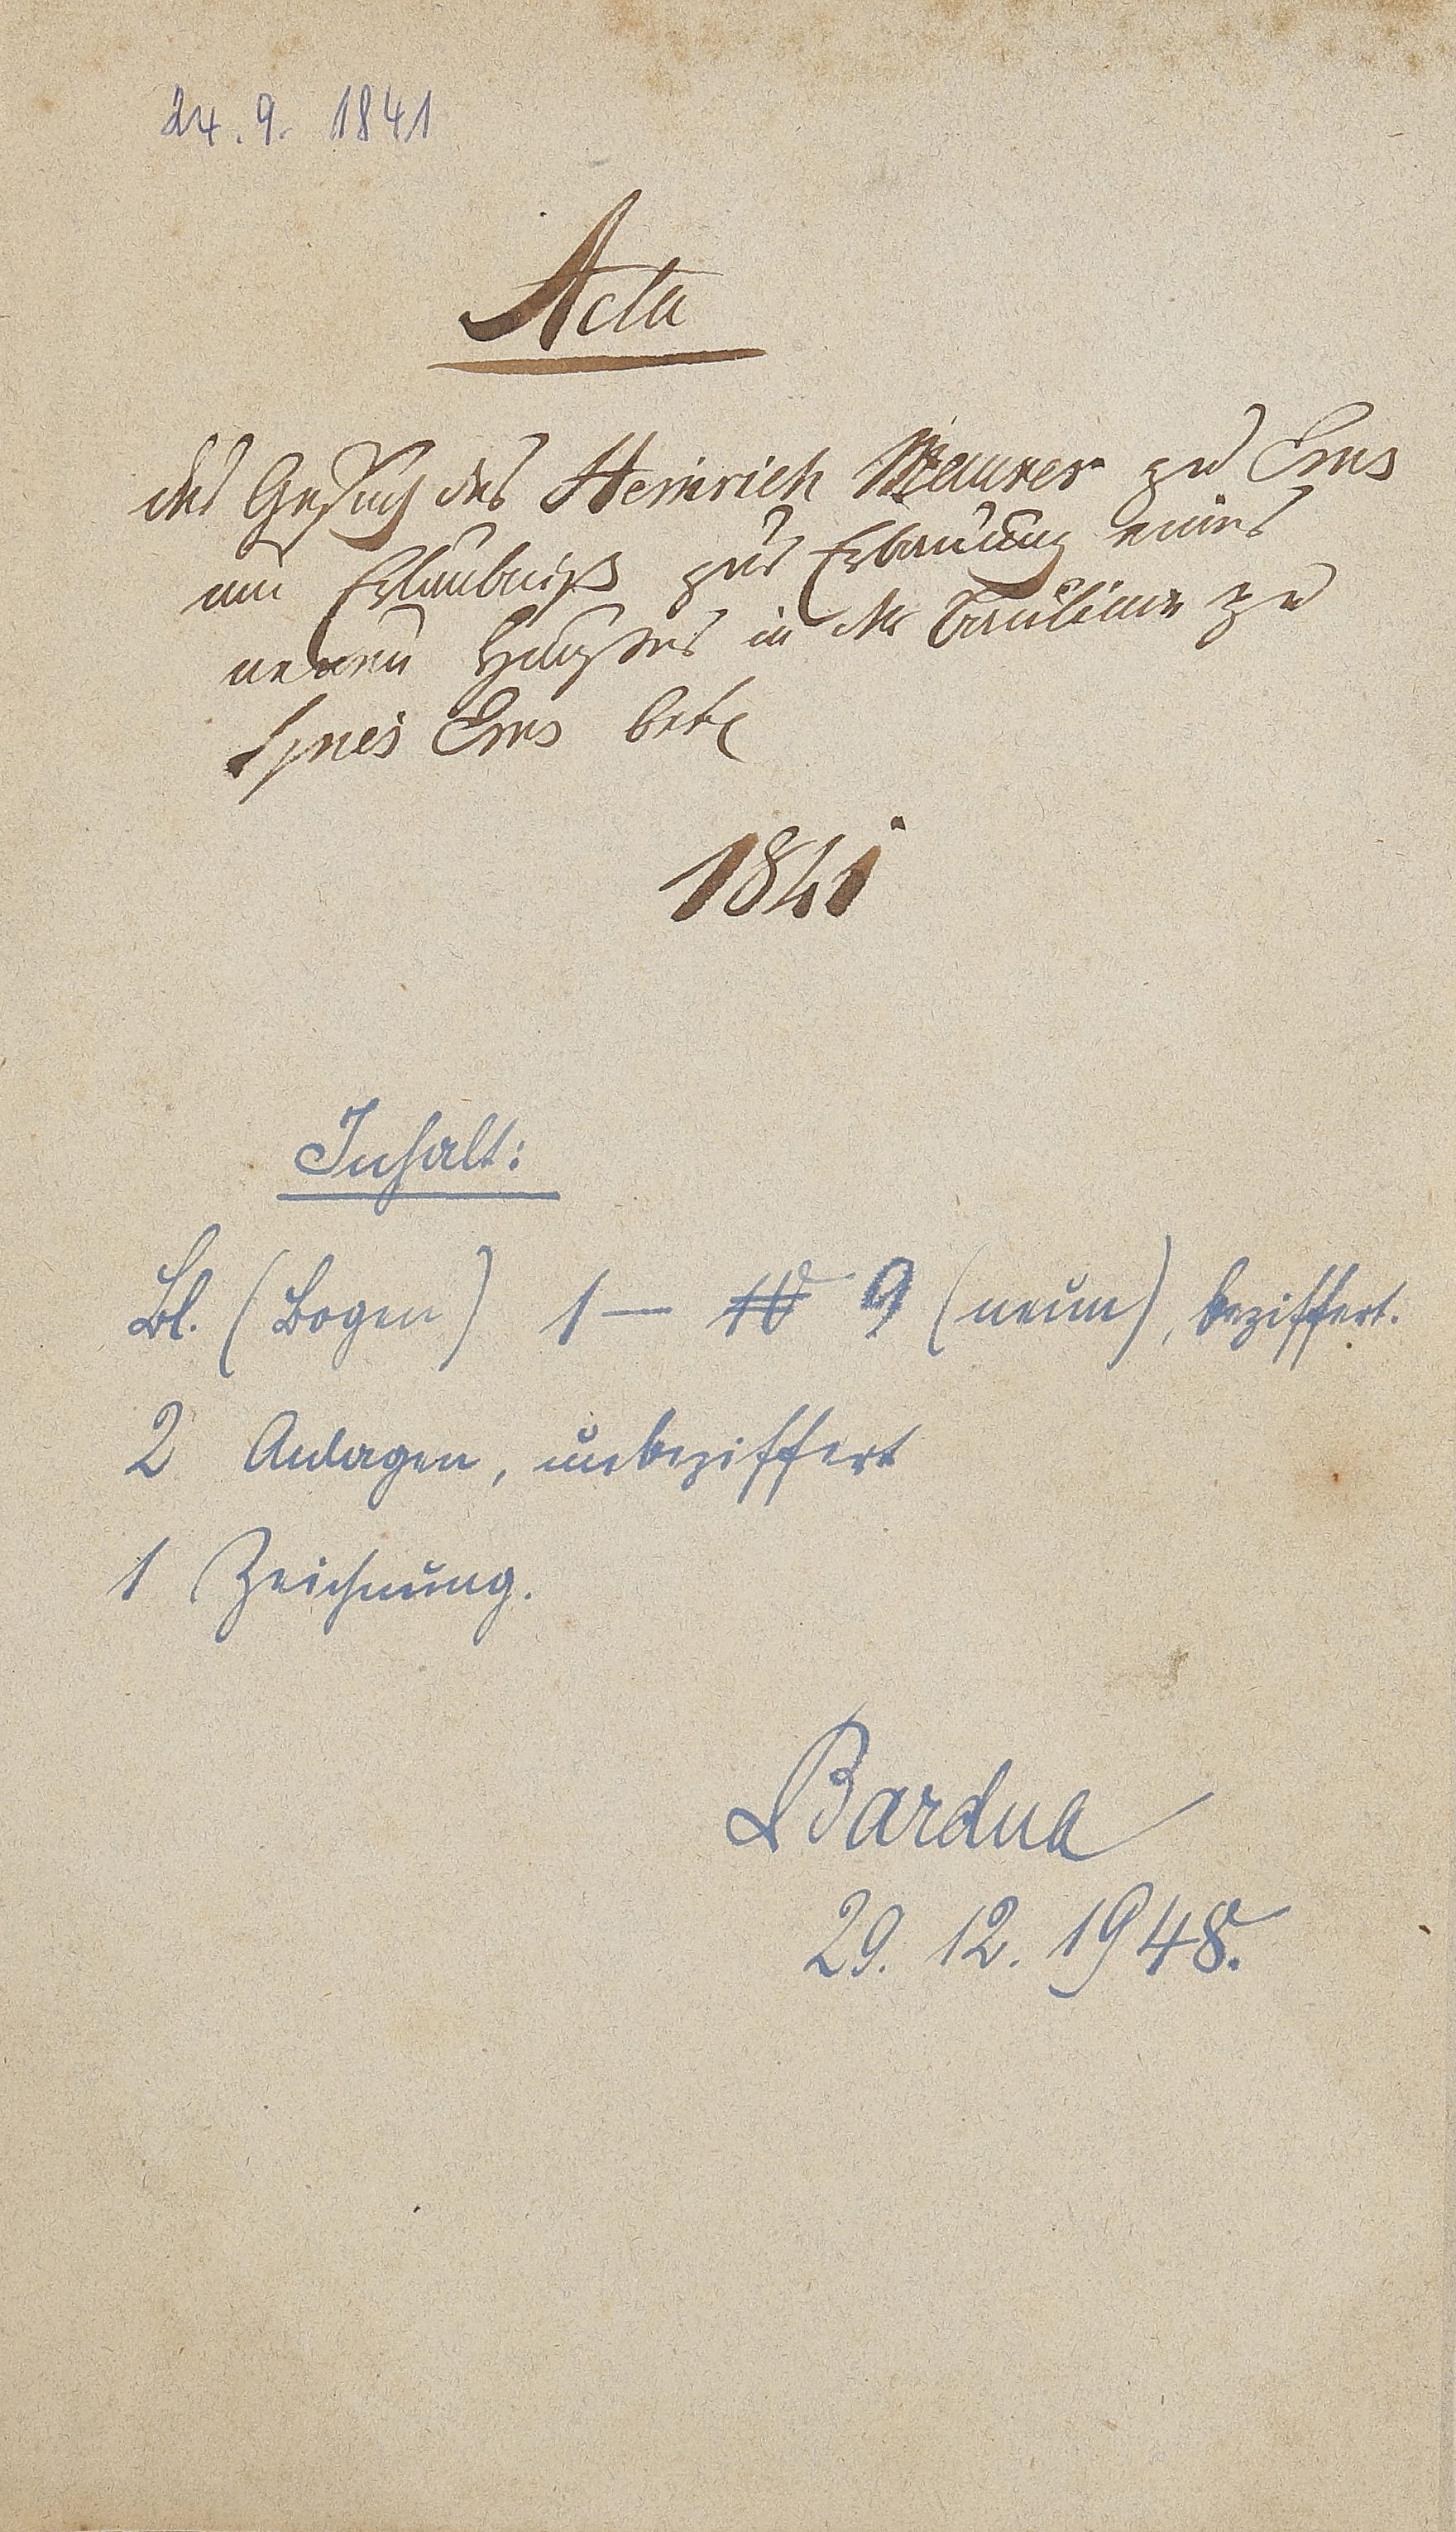 24. 9. 1841
Acta
das Gesuch des Heinrich Maurer zu Ems
um Erlaubniß zur Erbauung eines
neuen Haußes in der Baulinie zu
Ems betr
1841
Inhalt:
Bl. (Bogen) 1 — 10 9 (neun), beziffert.
2 Anlagen, unbeziffert
1 Zeichnung.
Bardua
29. 12. 1948.